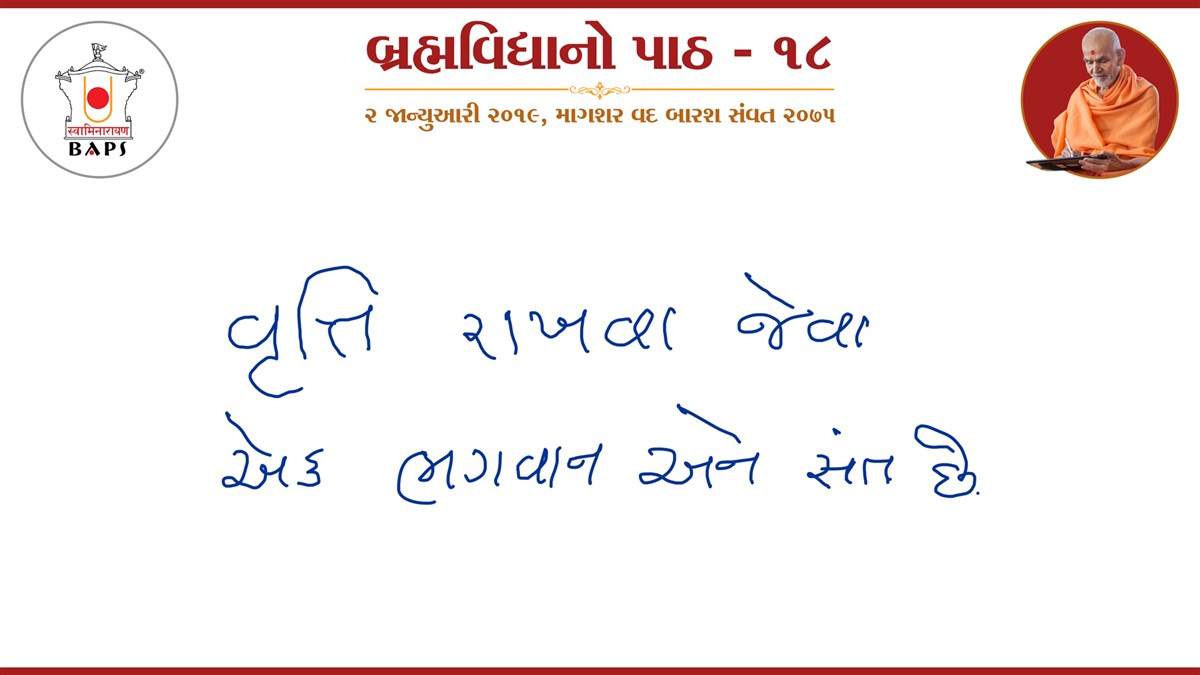 બ્રહ્મવિદ્યાનો પાઠ - ૧૮
૨ જાન્યુઆરી ૨૦૧૯, માગશર વદ બારશ સંવત ૨૦૭૫
स्वामिनारायण
®
BAPS
વૃત્તિ રાખવા જેવા
એક ભગવાન અને સંત છે.